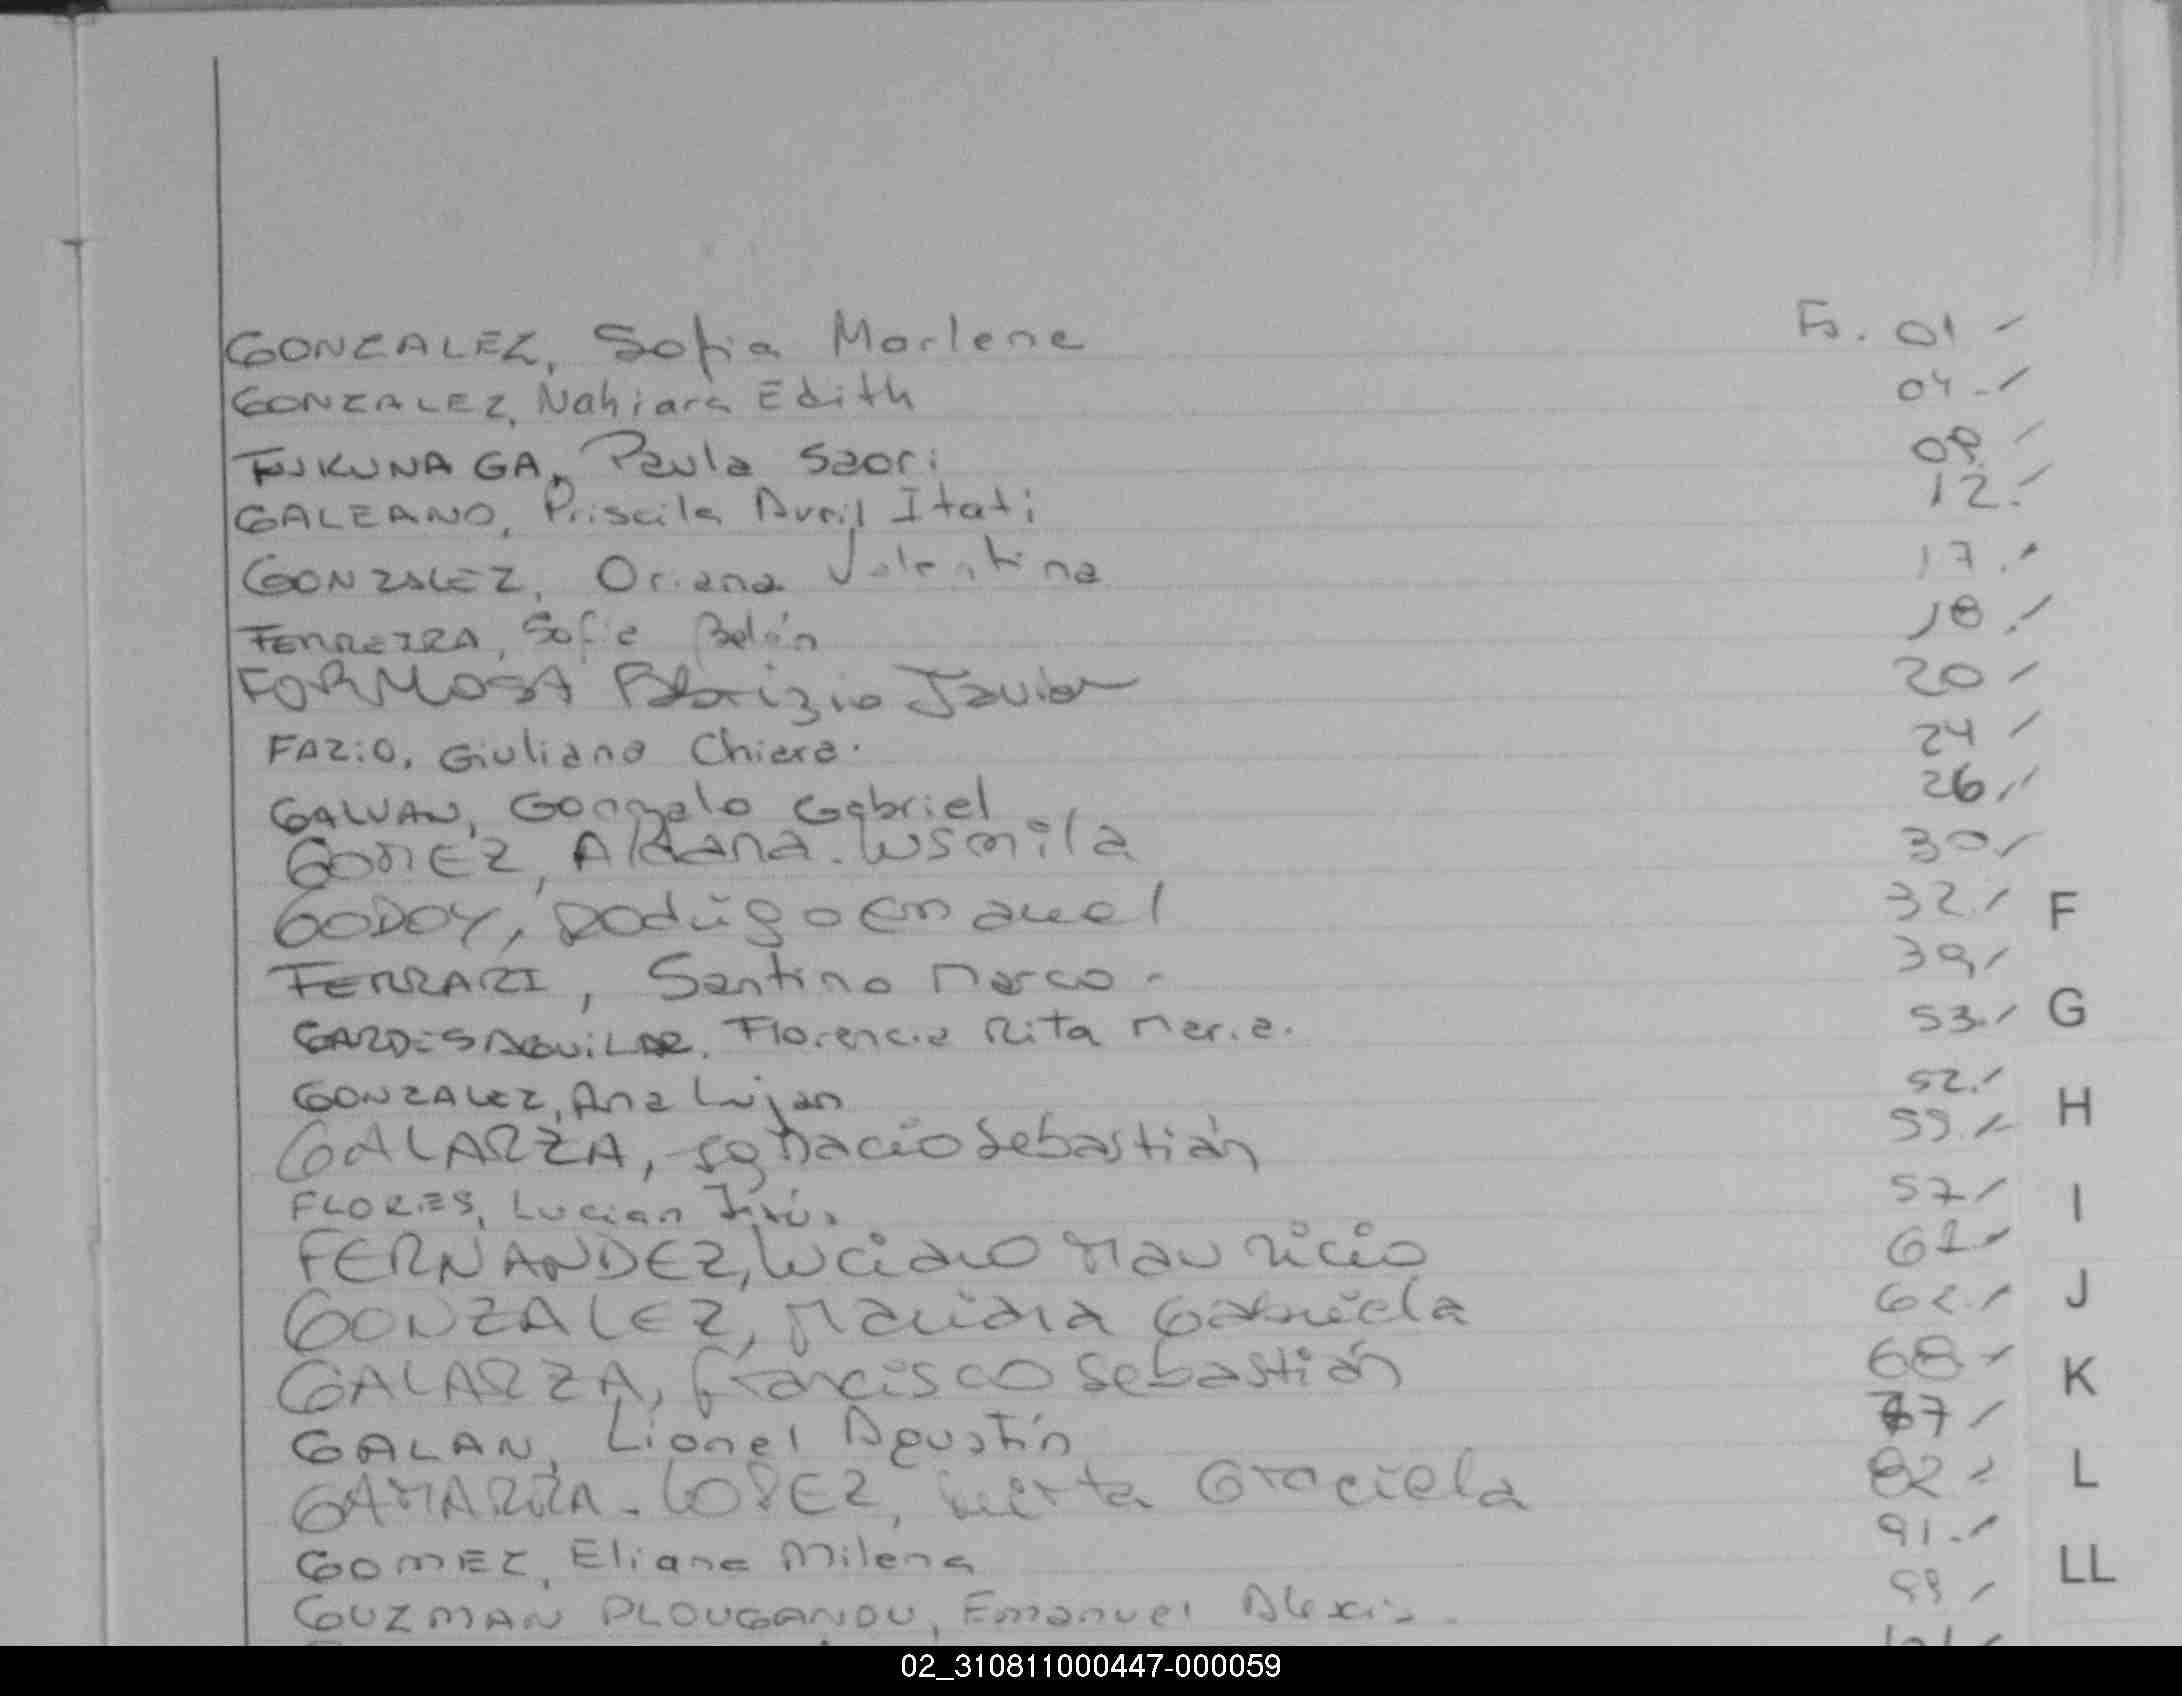 GONZALEZ, Sofia Marlene Fs. 01
GONZALEZ, Nahiara Edith 04.
FUKUNAGA, Paula Saori 09
GALEANO, Priscila Avril Itati 12.
GONZALEZ, Oriana Valentina 17.
FERREIRA, Sofia Belén 18.
FORMOSA Fabrizio Javier 20
FAZiO, Giuliana Chiara. 24
GALVAN, Gonzalo Gabriel 26
GOMEZ, Aldana Lusmila 30
GODOY, Rodrigo Emanuel 32.
F
FERRARI, Santino Marco - 39
GARDES AGUiLAR, Florencia Rita Maria. 53.
G
GONZALEZ, Ana Lujan 52.
GALARZA, Ignacio Sebastián 55.
H
FLORES, Lucian Jesús 57
I
FERNANDEZ, Luciano Mauricio 61
GONZALEZ, Mariana Gabriela 62.
J
GALARZA, Francisco Sebastián 68
K
GALAN, Lionel Agustín 77
GAMARRA - LOPEZ, Graciela 82
L
GOMEZ, Eliana Milena 91.
LL
GUZMAN PLOUGANOU, Emanuel Alexis 99
02_310811000447-000059